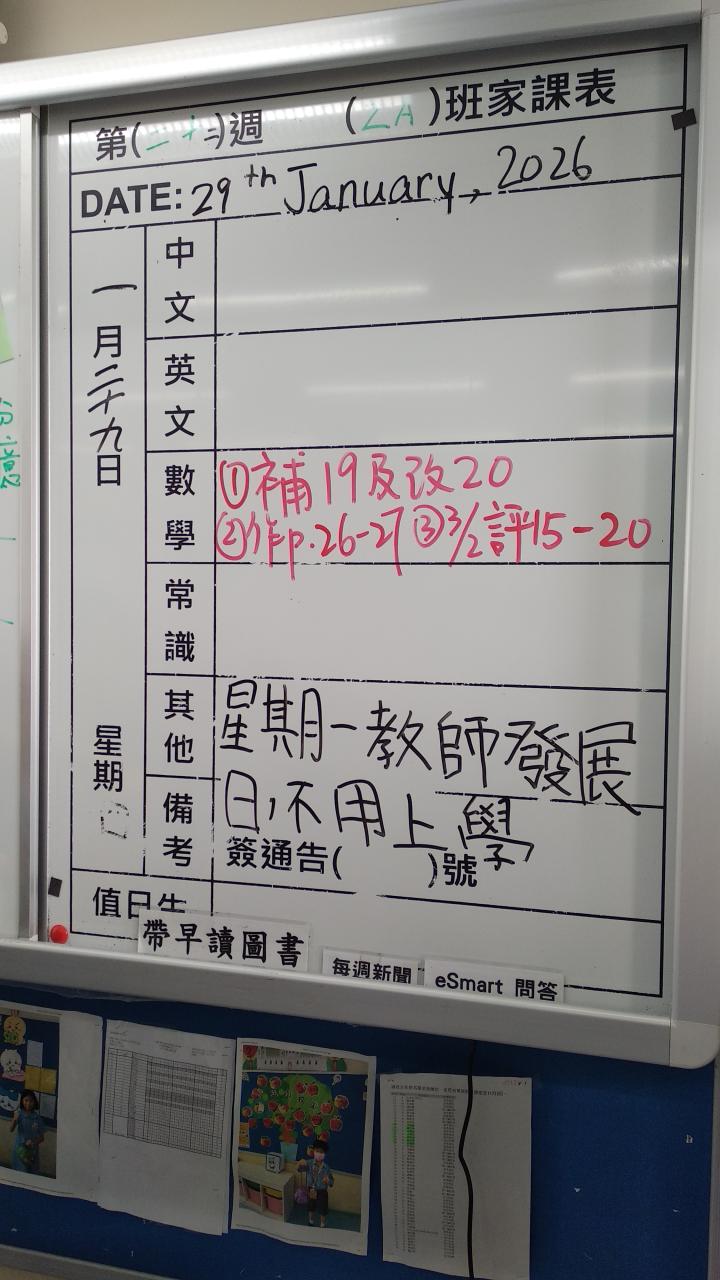 第(二十二)週 (2A)班家課表
DATE: 29th January, 2026
一月二十九日
星期
中文
英文
數學
①補19及改20
②作p.26-27 ③3/2評15-20
常識
其他
星期一教師發展
備考
日,不用上學
簽通告( )號
值日生
帶早讀圖書
每週新聞
eSmart 問答